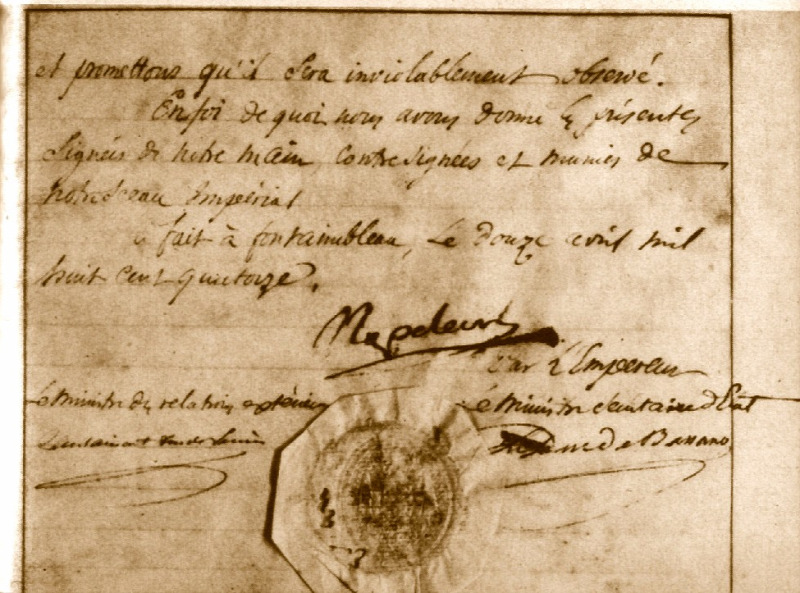 et promettons qu'il sera inviolablement observé.
En foi de quoi nous avons donné les présentes
signées de notre main, contresignées et munies de
notre sceau Impérial
fait à fontainebleau, Le douze avril mil
huit cent quatorze.
Napoléon
Par l'Empereur
Le Ministre des relations extérieures
Le Ministre Secrétaire d'Etat
Le Duc de Bassano